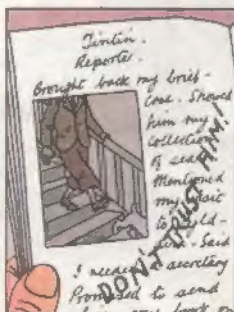 Tintin.
Reporter.
Brought back my brief-
case. Showed
him my
collection
of
Mentioned
my visit
to
Said
I needed a secretary
Promised to send
my book
DON'T TRUST HIM!